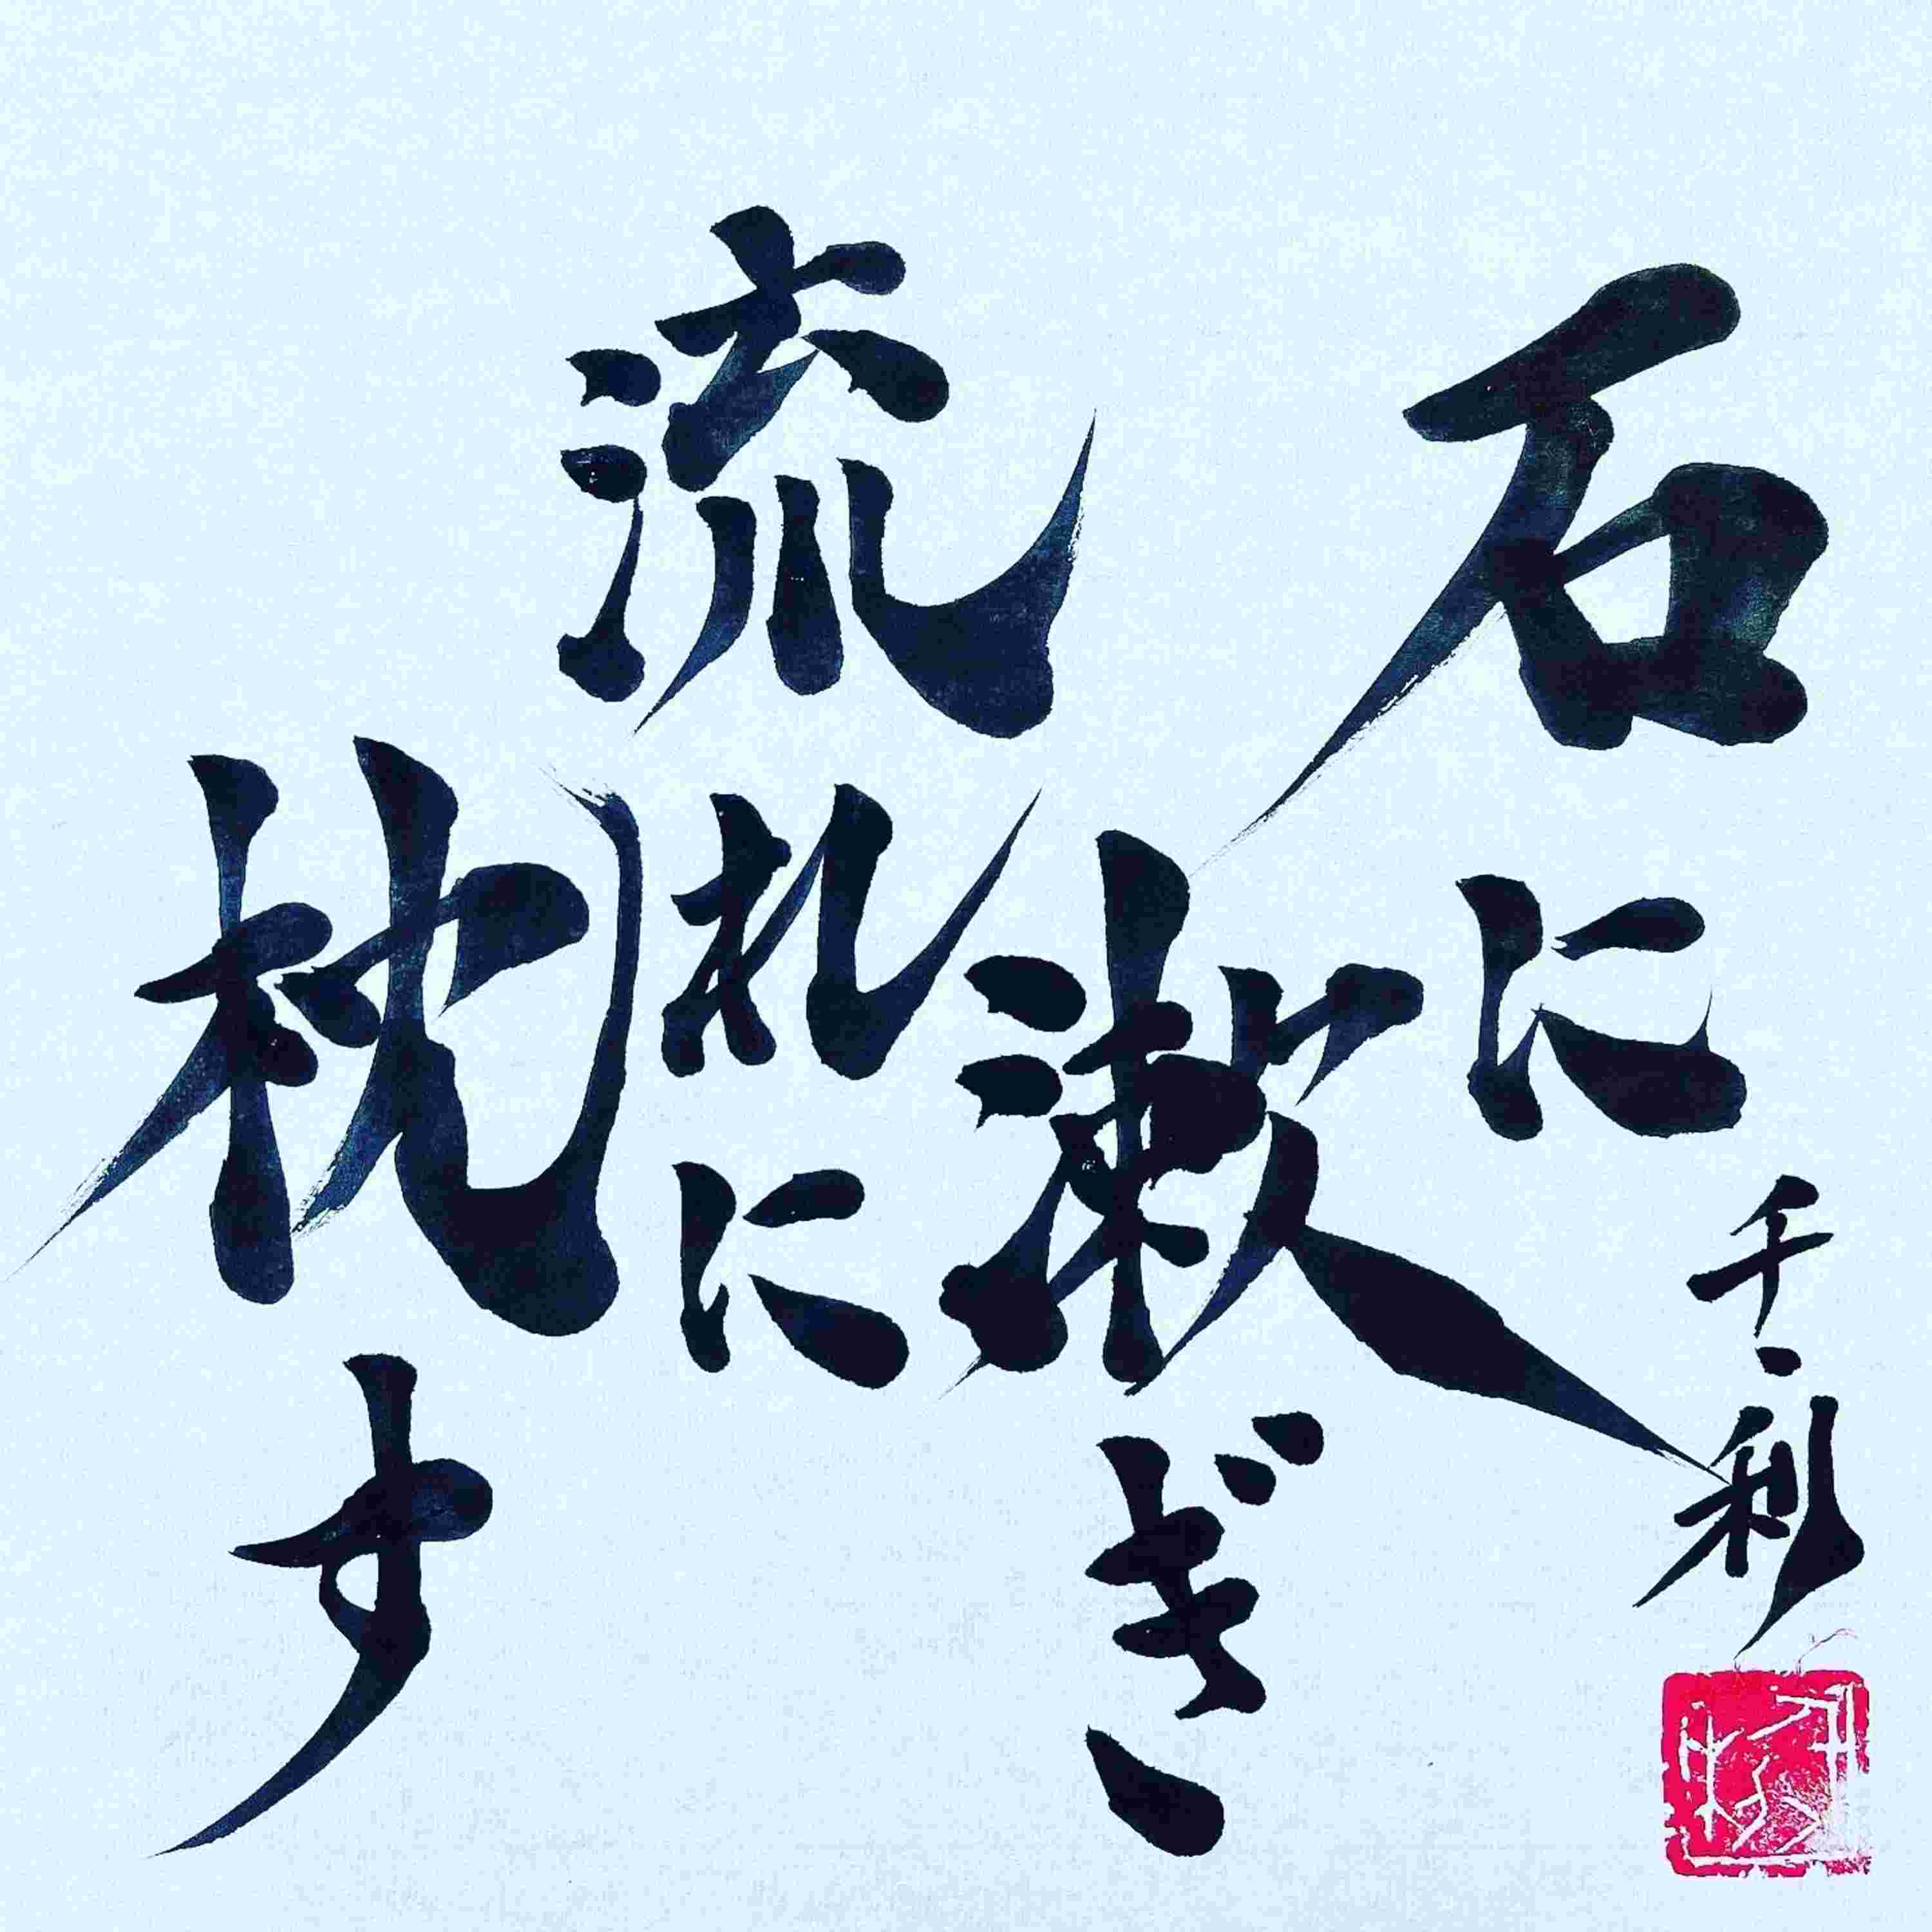 石に
漱ぎ
流れに
枕す
千利